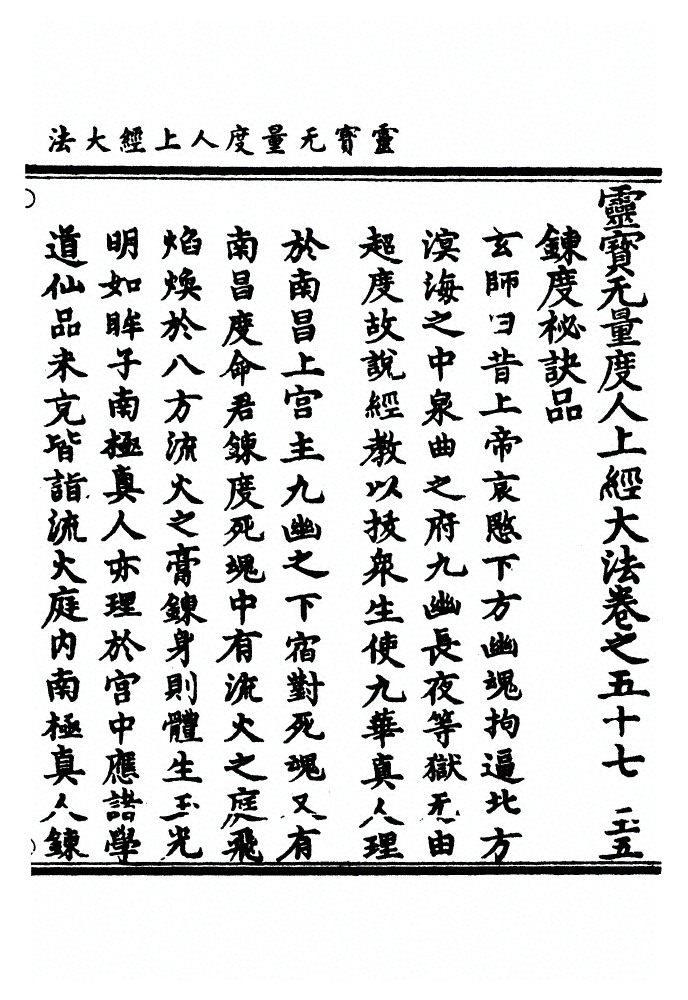 靈寳无量度人上經大法
靈寳无量度人上經大法卷之五十七 玉五
鍊度祕訣品
玄師曰昔上帝哀愍下方幽魂拘逼北方
溟海之中泉曲之府九幽長夜等獄无由
超度故說經教以拔衆生使九華真人理
於南昌上宫主九幽之下宿對死魂又有
南昌度命君鍊度死魂中有流火之庭飛
焰煥於八方流火之膏鍊身則體生玉光
明如眸子南極真人亦理於宫中應諸學
道仙品未克皆詣流火庭内南極真人鍊